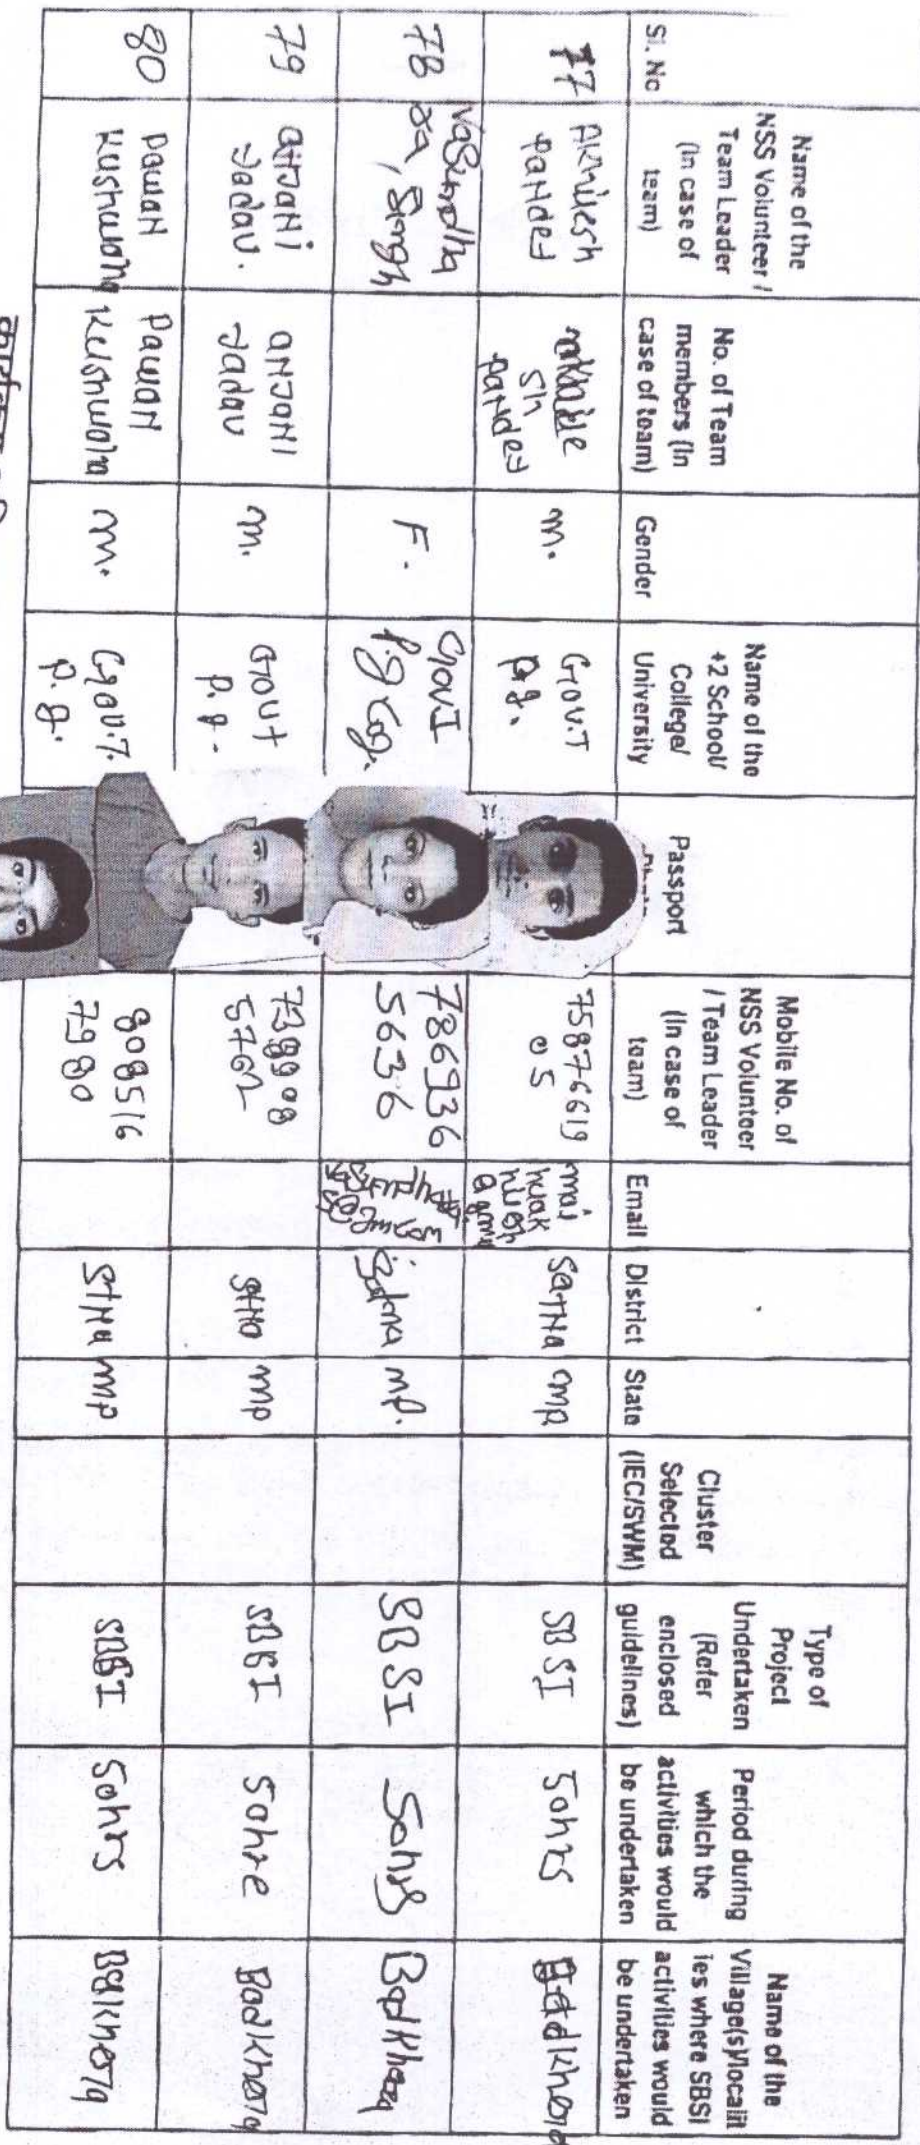 Sl. No
Name of the
NSS Volunteer /
Team Leader
(In case of
team)
No. of Team
members (In
case of team)
Gender
Name of the
+2 School/
College/
University
Passport
Mobile No. of
NSS Volunteer
/ Team Leader
(In case of
team)
Email
District
State
Cluster
Selected
(IEC/SWM)
Type of
Project
Undertaken
(Refer
enclosed
guidelines)
Period during
which the
activities would
be undertaken
Name of the
Village(s)/localit
ies where SBSI
activities would
be undertaken
77
Akhilesh
PaNdey
sh
PaNdey
m.
Gov.T
p.g.
75876619
05
SaTNa
mp
SBSI
50hrs
78
Vasundha
ra, Singh
F.
786936
5636
Satna
mp.
SBSI
50hrs
79
aNJaNi
Jadav.
aNJaNI
Jadav
m.
Gout
p.g.
738908
5762
mp
50hre
Badkhera
80
PawaN
Kushwaha
PawaN
Kushwaha
m.
Gov.T.
p.g.
808516
7980
STNa
mp
50hrs